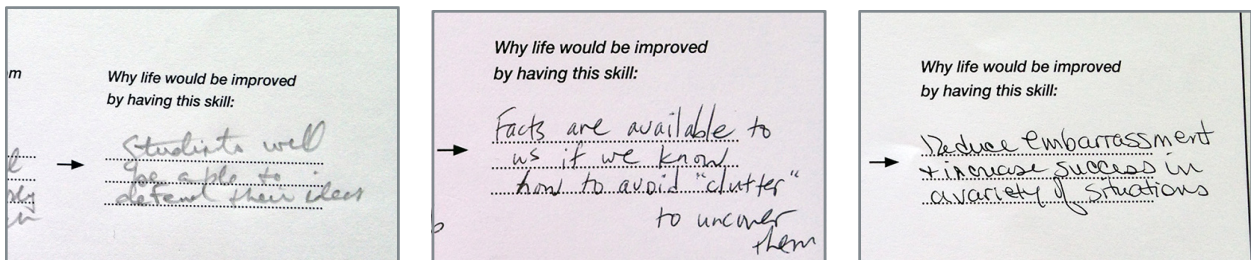 m
Why life would be improved
by having this skill:
Students will
be able to
defend their ideas
Why life would be improved
by having this skill:
Facts are available to
us if we know
how to avoid "clutter"
to uncover
them
Why life would be improved
by having this skill:
Reduce embarrassment
+ increase success in
a variety of situations